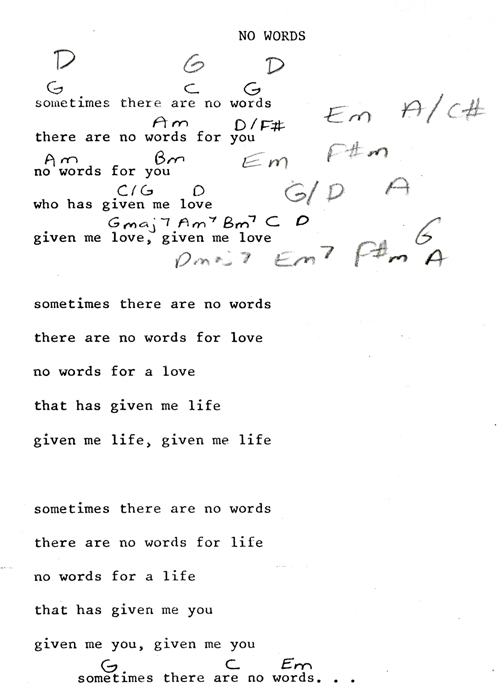 NO WORDS
D G D
G C G
sometimes there are no words
Am D/F# Em A/C#
there are no words for you
Am Bm Em F#m
no words for you
C/G D G/D A
who has given me love
Gmaj7 Am7 Bm7 C D
given me love, given me love
Dmaj7 Em7 F#m G A
sometimes there are no words
there are no words for love
no words for a love
that has given me life
given me life, given me life
sometimes there are no words
there are no words for life
no words for a life
that has given me you
given me you, given me you
G C Em
sometimes there are no words. . .